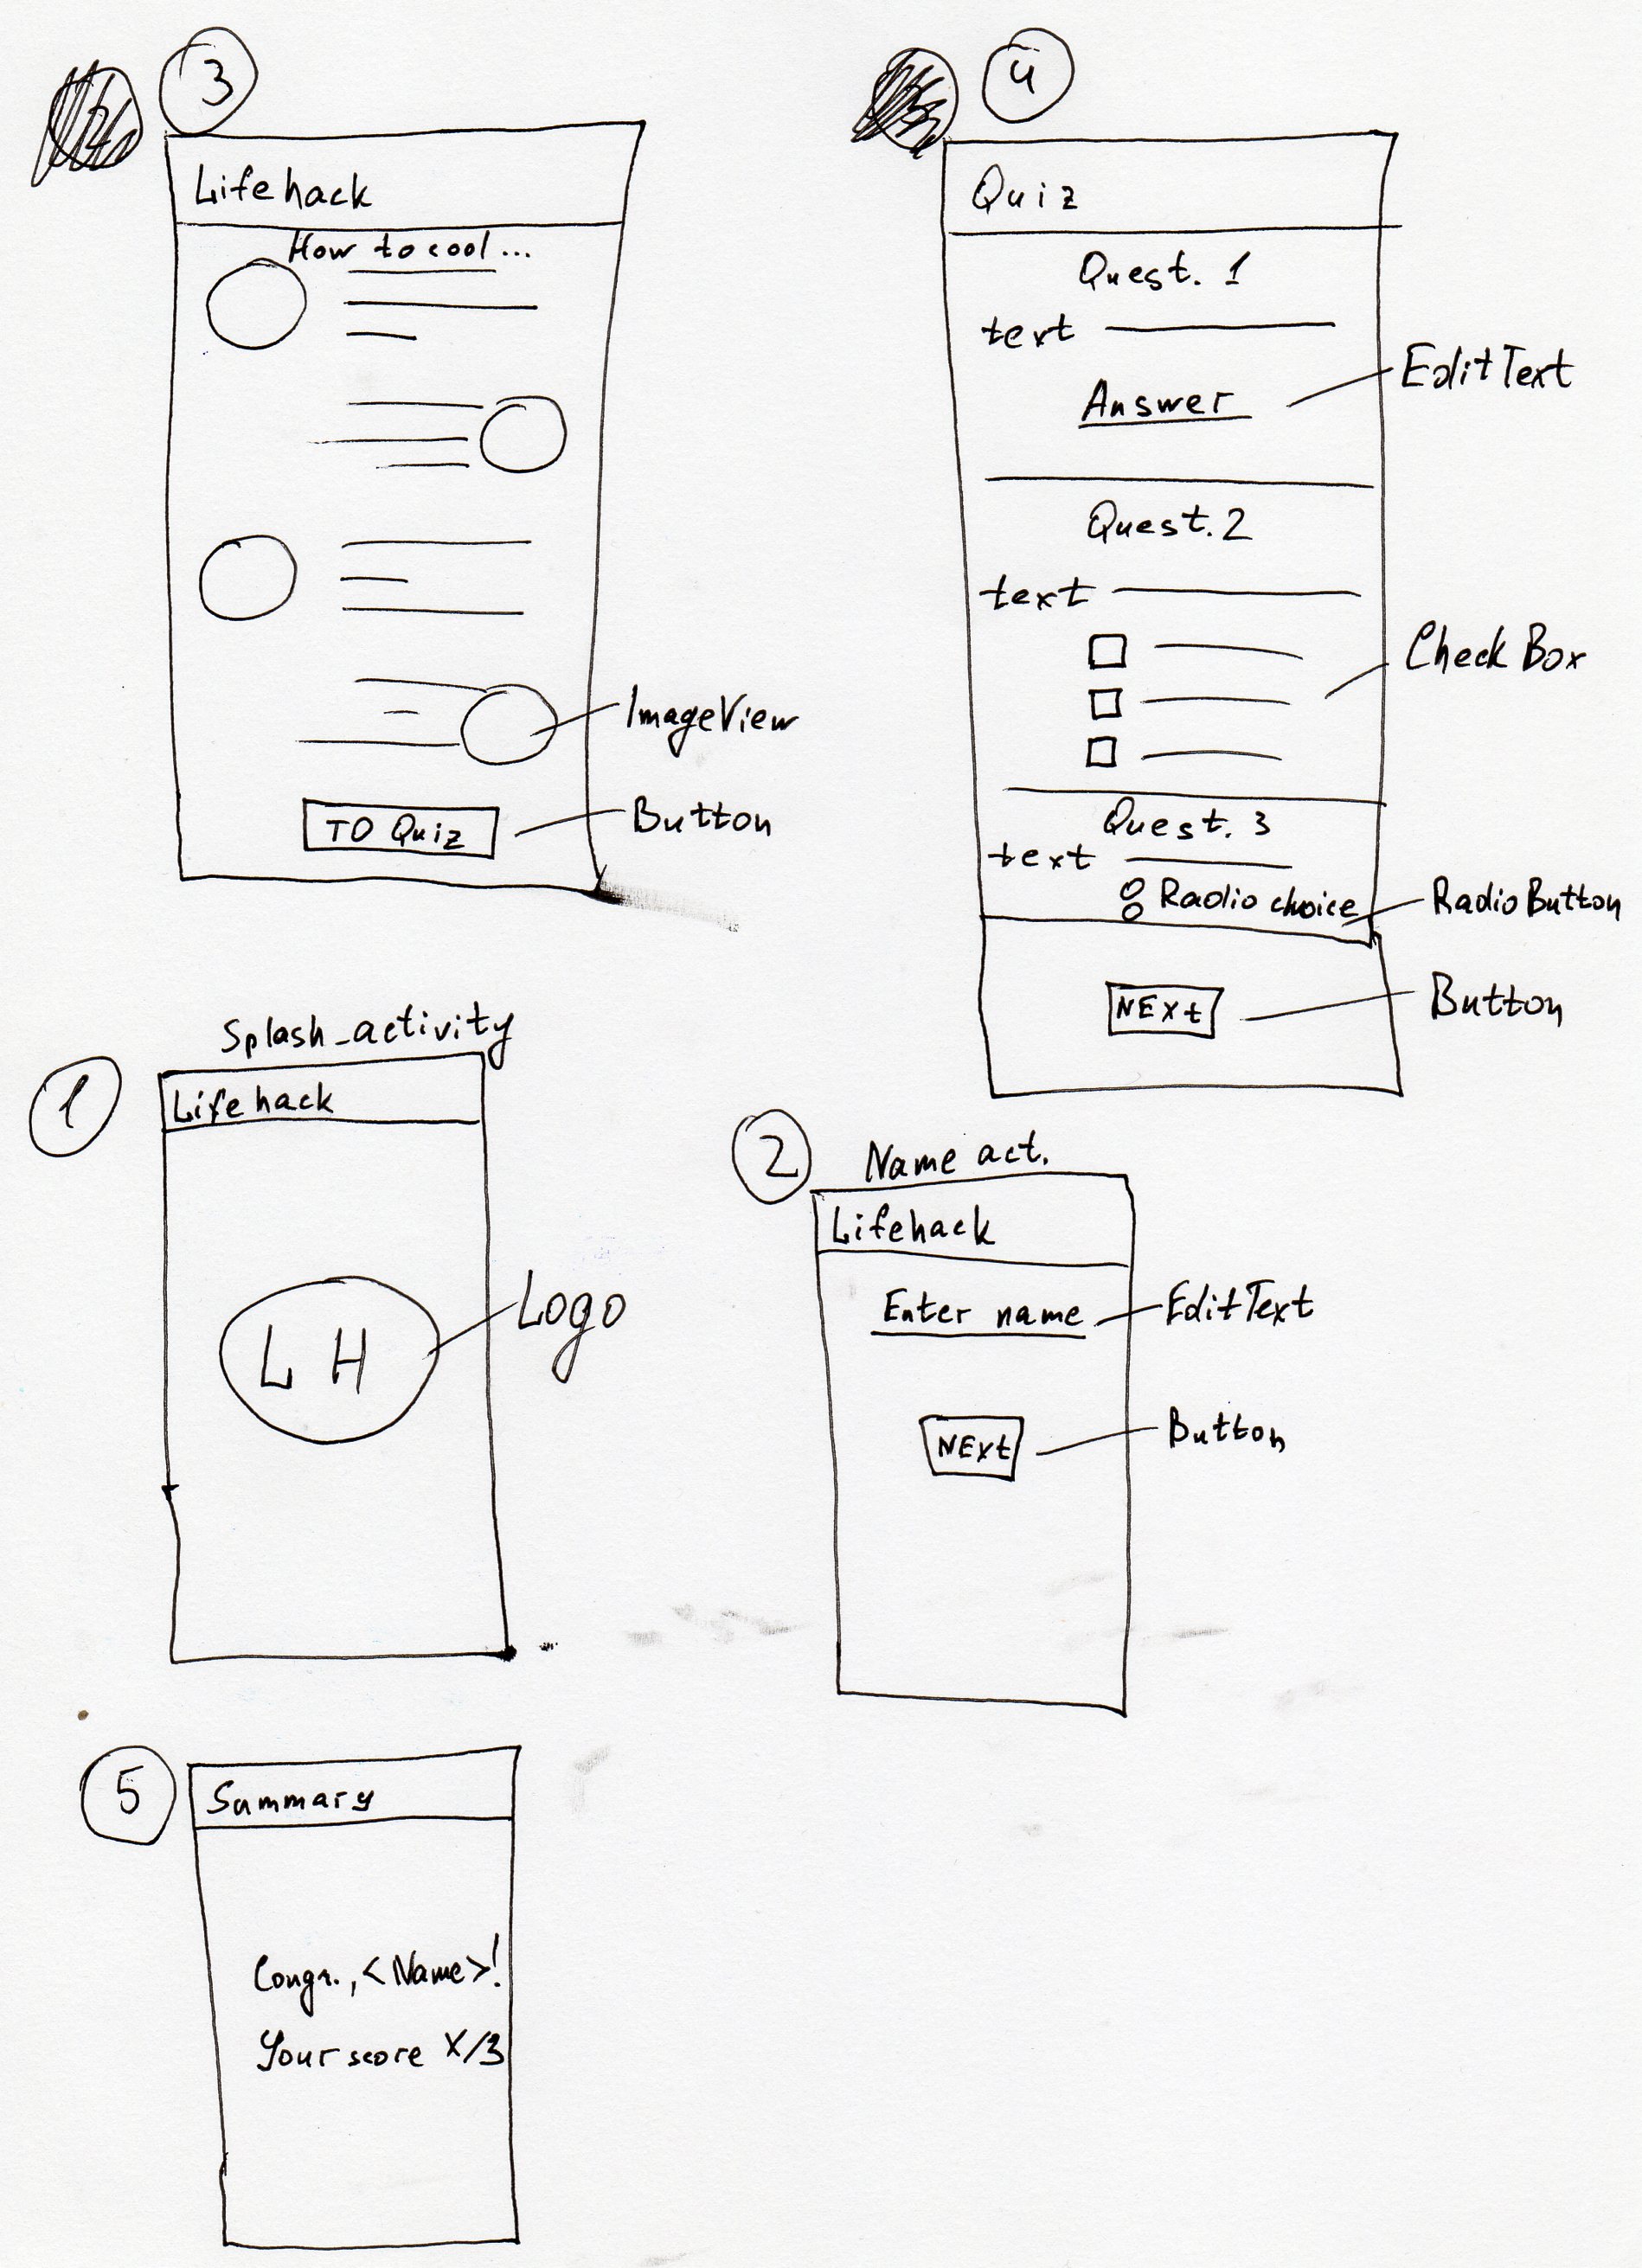 3
Lifehack
How to cool...
ImageView
TO Quiz
Button
4
Quiz
Quest. 1
text
EditText
Answer
Quest. 2
text
CheckBox
Quest. 3
text
Radio choice
RadioButton
NExt
Button
1
Splash_activity
Lifehack
L H
Logo
2
Name act.
Lifehack
Enter name
EditText
NExt
Button
5
Summary
Congr., <Name>!
Your score X/3